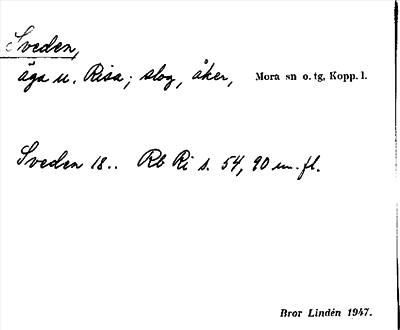 Sveden,
äga u. Risa; slog, åker, Mora sn o. tg, Kopp. l.
Sveden 18.. Rb Ri s. 54, 90 m. fl.
Bror Lindén 1947.